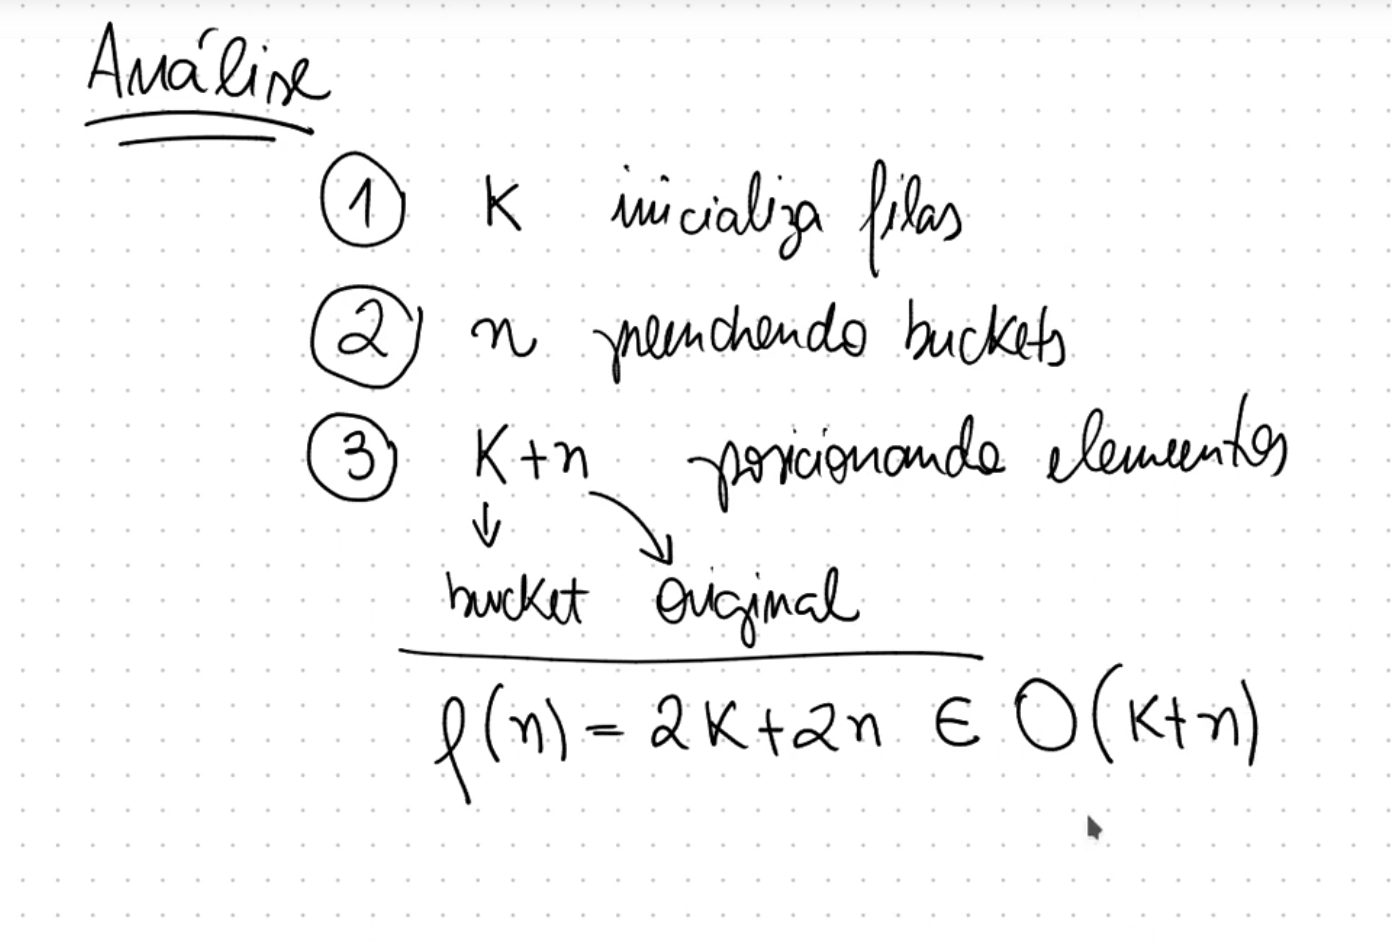 Análise
1 K inicializa filas
2 n preenchendo buckets
3 K+n posicionando elementos
↓
bucket original
f(n) = 2K+2n ∈ O(K+n)